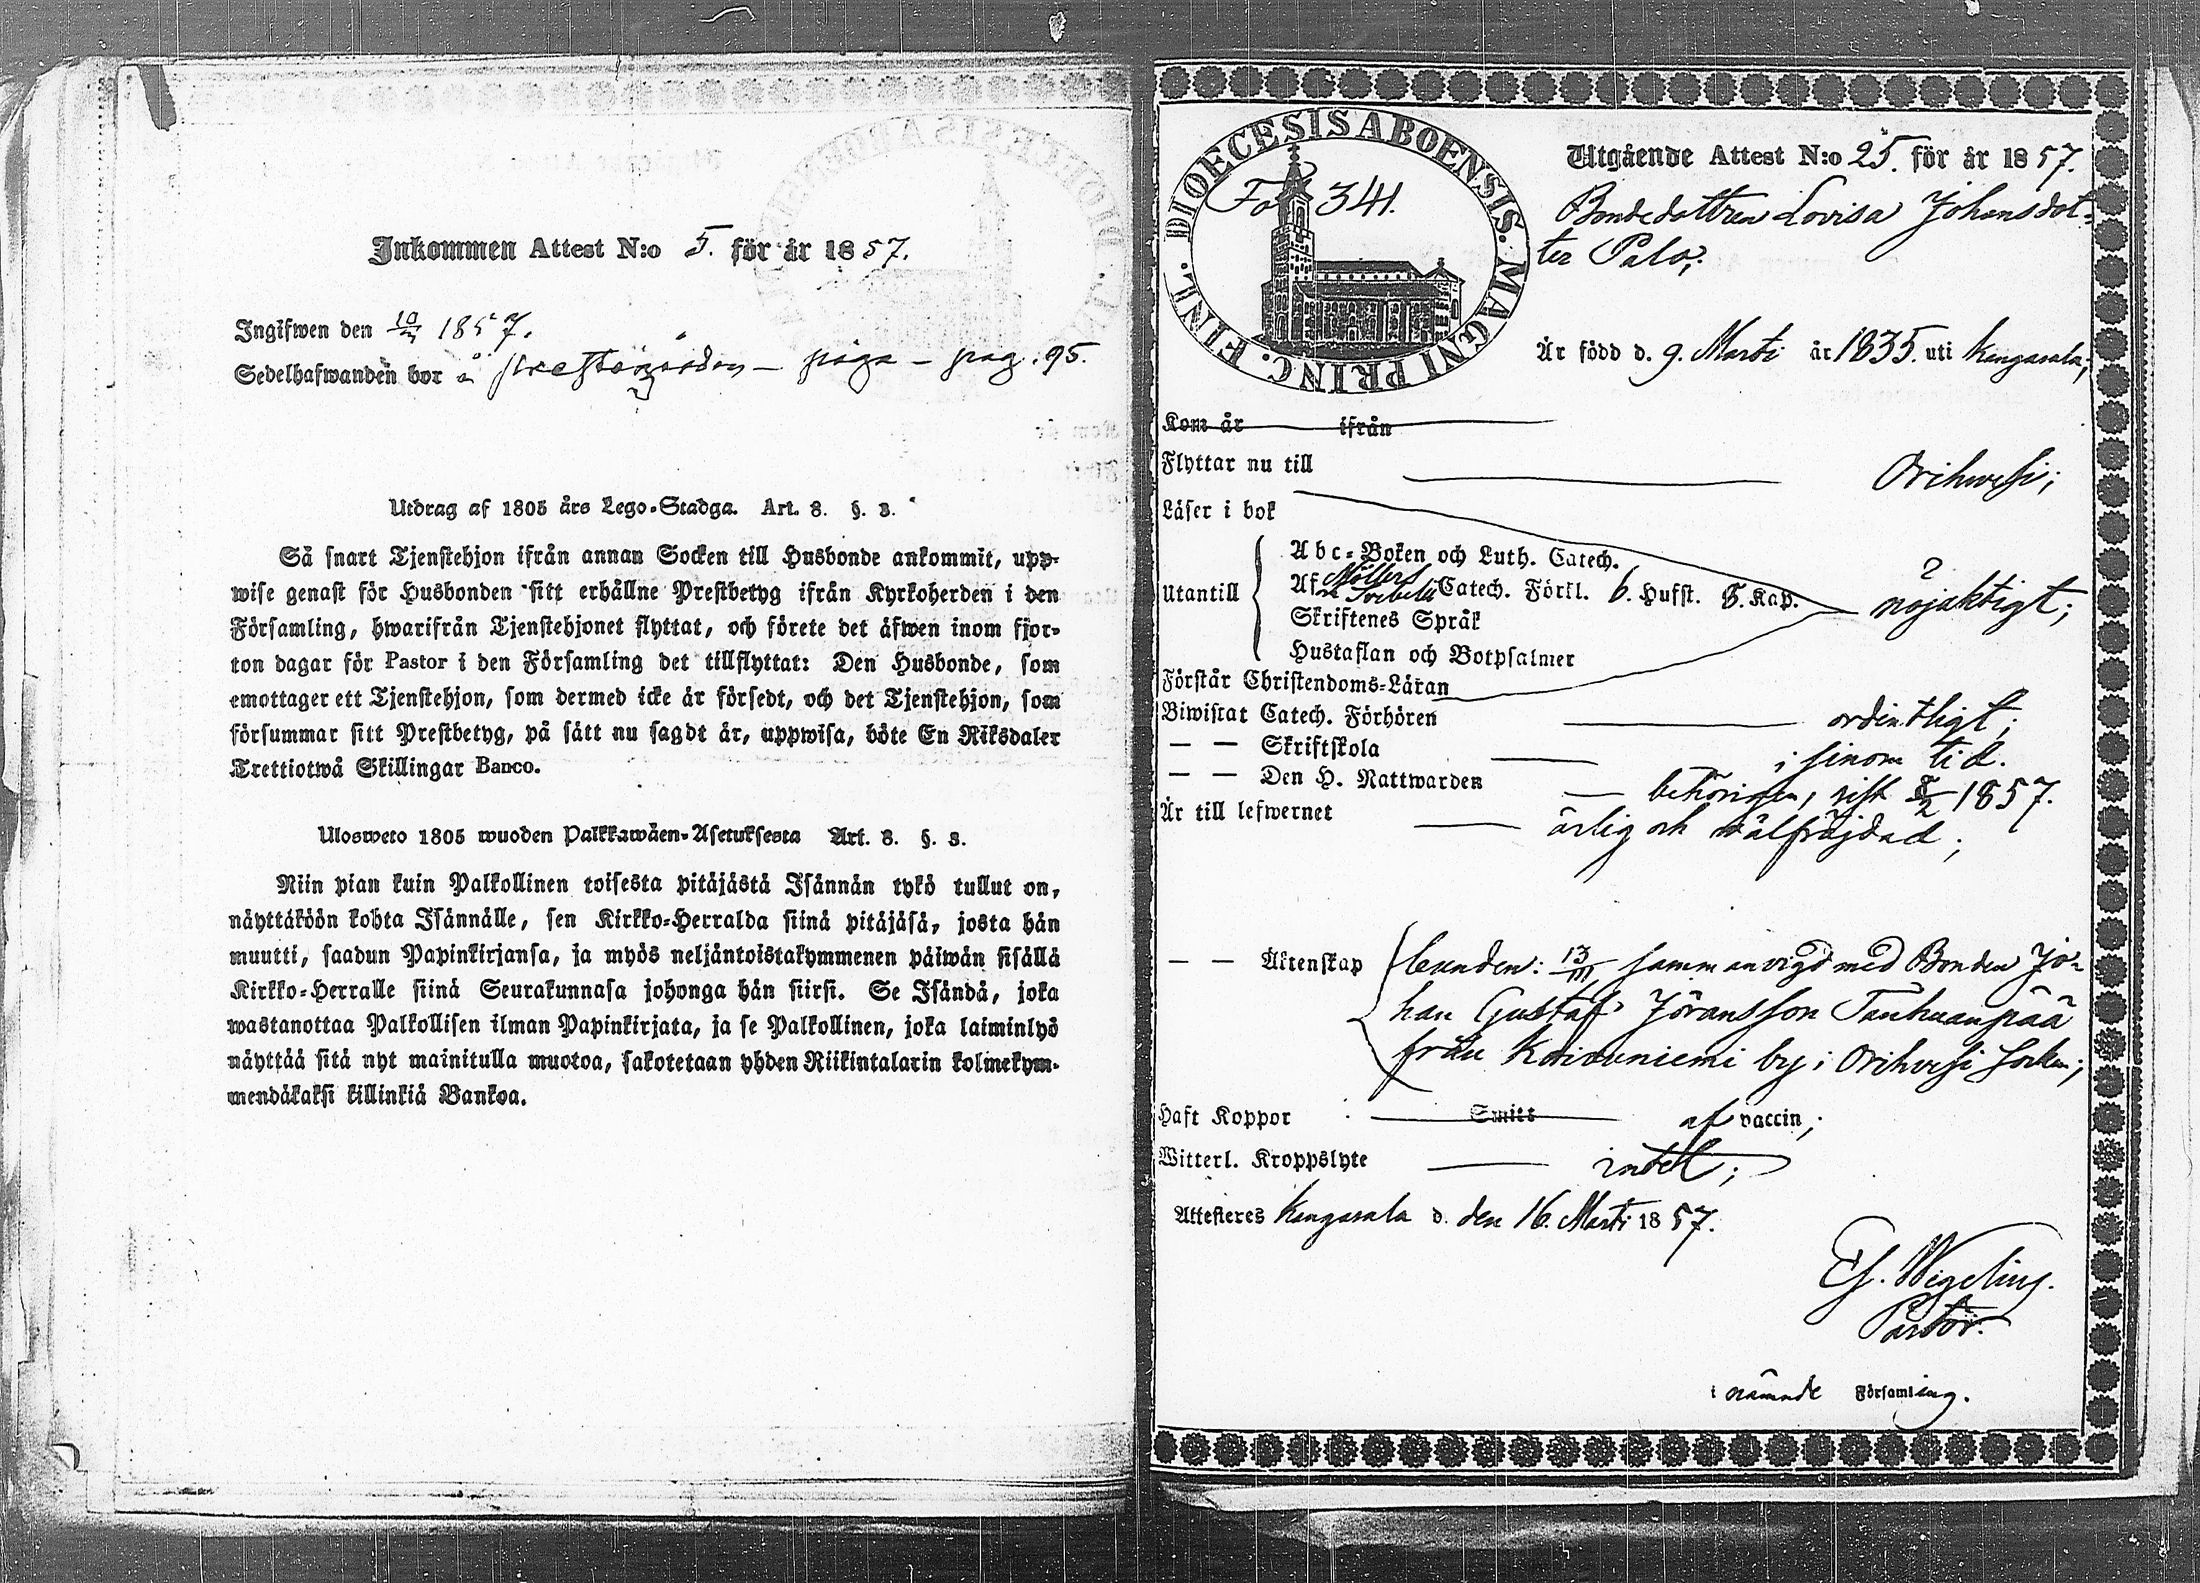 Inkommen Attest N:o 5. för år 1857.
Ingifwen den 10/3 1857.
Sedelhafwanden bor å prestegården – piga – pag. 95.
Utdrag af 1805 års Lego-Stadga. Art. 8. §. 3.
Så snart Tjenstehjon ifrån annan Socken till Husbonde ankommit, upp-
wise genast för Husbonden sitt erhållne Prestbetyg ifrån Kyrkoherden i den
Församling, hwarifrån Tjenstehjonet flyttat, och förete det äfwen inom fjor-
ton dagar för Pastor i den Församling det tillflyttat: Den Husbonde, som
emottager ett Tjenstehjon, som dermed icke är försedt, och det Tjenstehjon, som
försummar sitt Prestbetyg, på sätt nu sagdt är, uppwisa, böte En Riksdaler
Trettiotwå Skillingar Banco.
Ulosweto 1805 wuoden Palkkawäen-Asetuksesta Art. 8. §. 3.
Niin pian kuin Palkollinen toisesta pitäjästä Isännän tykö tullut on,
näyttäköön kohta Isännälle, sen Kirkko-Herralda siinä pitäjäsä, josta hän
muutti, saadun Papinkirjansa, ja myös neljäntoistakymmenen päiwän sisällä
Kirkko-Herralle siinä Seurakunnasa johonga hän siirsi. Se Isändä, joka
wastanottaa Palkollisen ilman Papinkirjata, ja se Palkollinen, joka laiminlyö
näyttää sitä nyt mainitulla muotoa, sakotetaan yhden Riikintalarin kolmekym-
mendäkaksi killinkiä Bankoa.
DIOECESIS ABOENSIS. MAGNI PRINC. FINL.
Fol 341.
Utgående Attest N:o 25. för år 1857.
Bondedottren Lovisa Johansdot-
ter Palo;
Är född d. 9. Marti år 1835. uti Kangasala;
Kom år ifrån
Flyttar nu till Orihwesi;
Läser i bok
Utantill
Abc-Boken och Luth. Catech.
Af Möllers o Svebelii Catech. Förkl. 6. Hufst. 5. Kap.
nöjaktigt;
Skriftenes Språk
Hustaflan och Botpsalmer
Förstår Christendoms-Läran
Biwistat Catech. Förhören ordentligt;
— — Skriftskola i sinom tid.
— — Den H. Nattwarden behörigen, sist 8/2 1857.
Är till lefwernet ärlig och wälfräjdad;
— — Äktenskap lkunden: 13/III samman vigd med Bonden Jo-
han Gustaf Jöransson Tauhuanpää
från Koivuniemi by i Orihvesi Socken;
Haft Koppor Smitt af vaccin;
Witterl. Kroppslyte intet;
Attesteres Kangasala d. den 16. Marti 1857.
Ef. Wegelius.
Pastor.
i nämnde Församling.